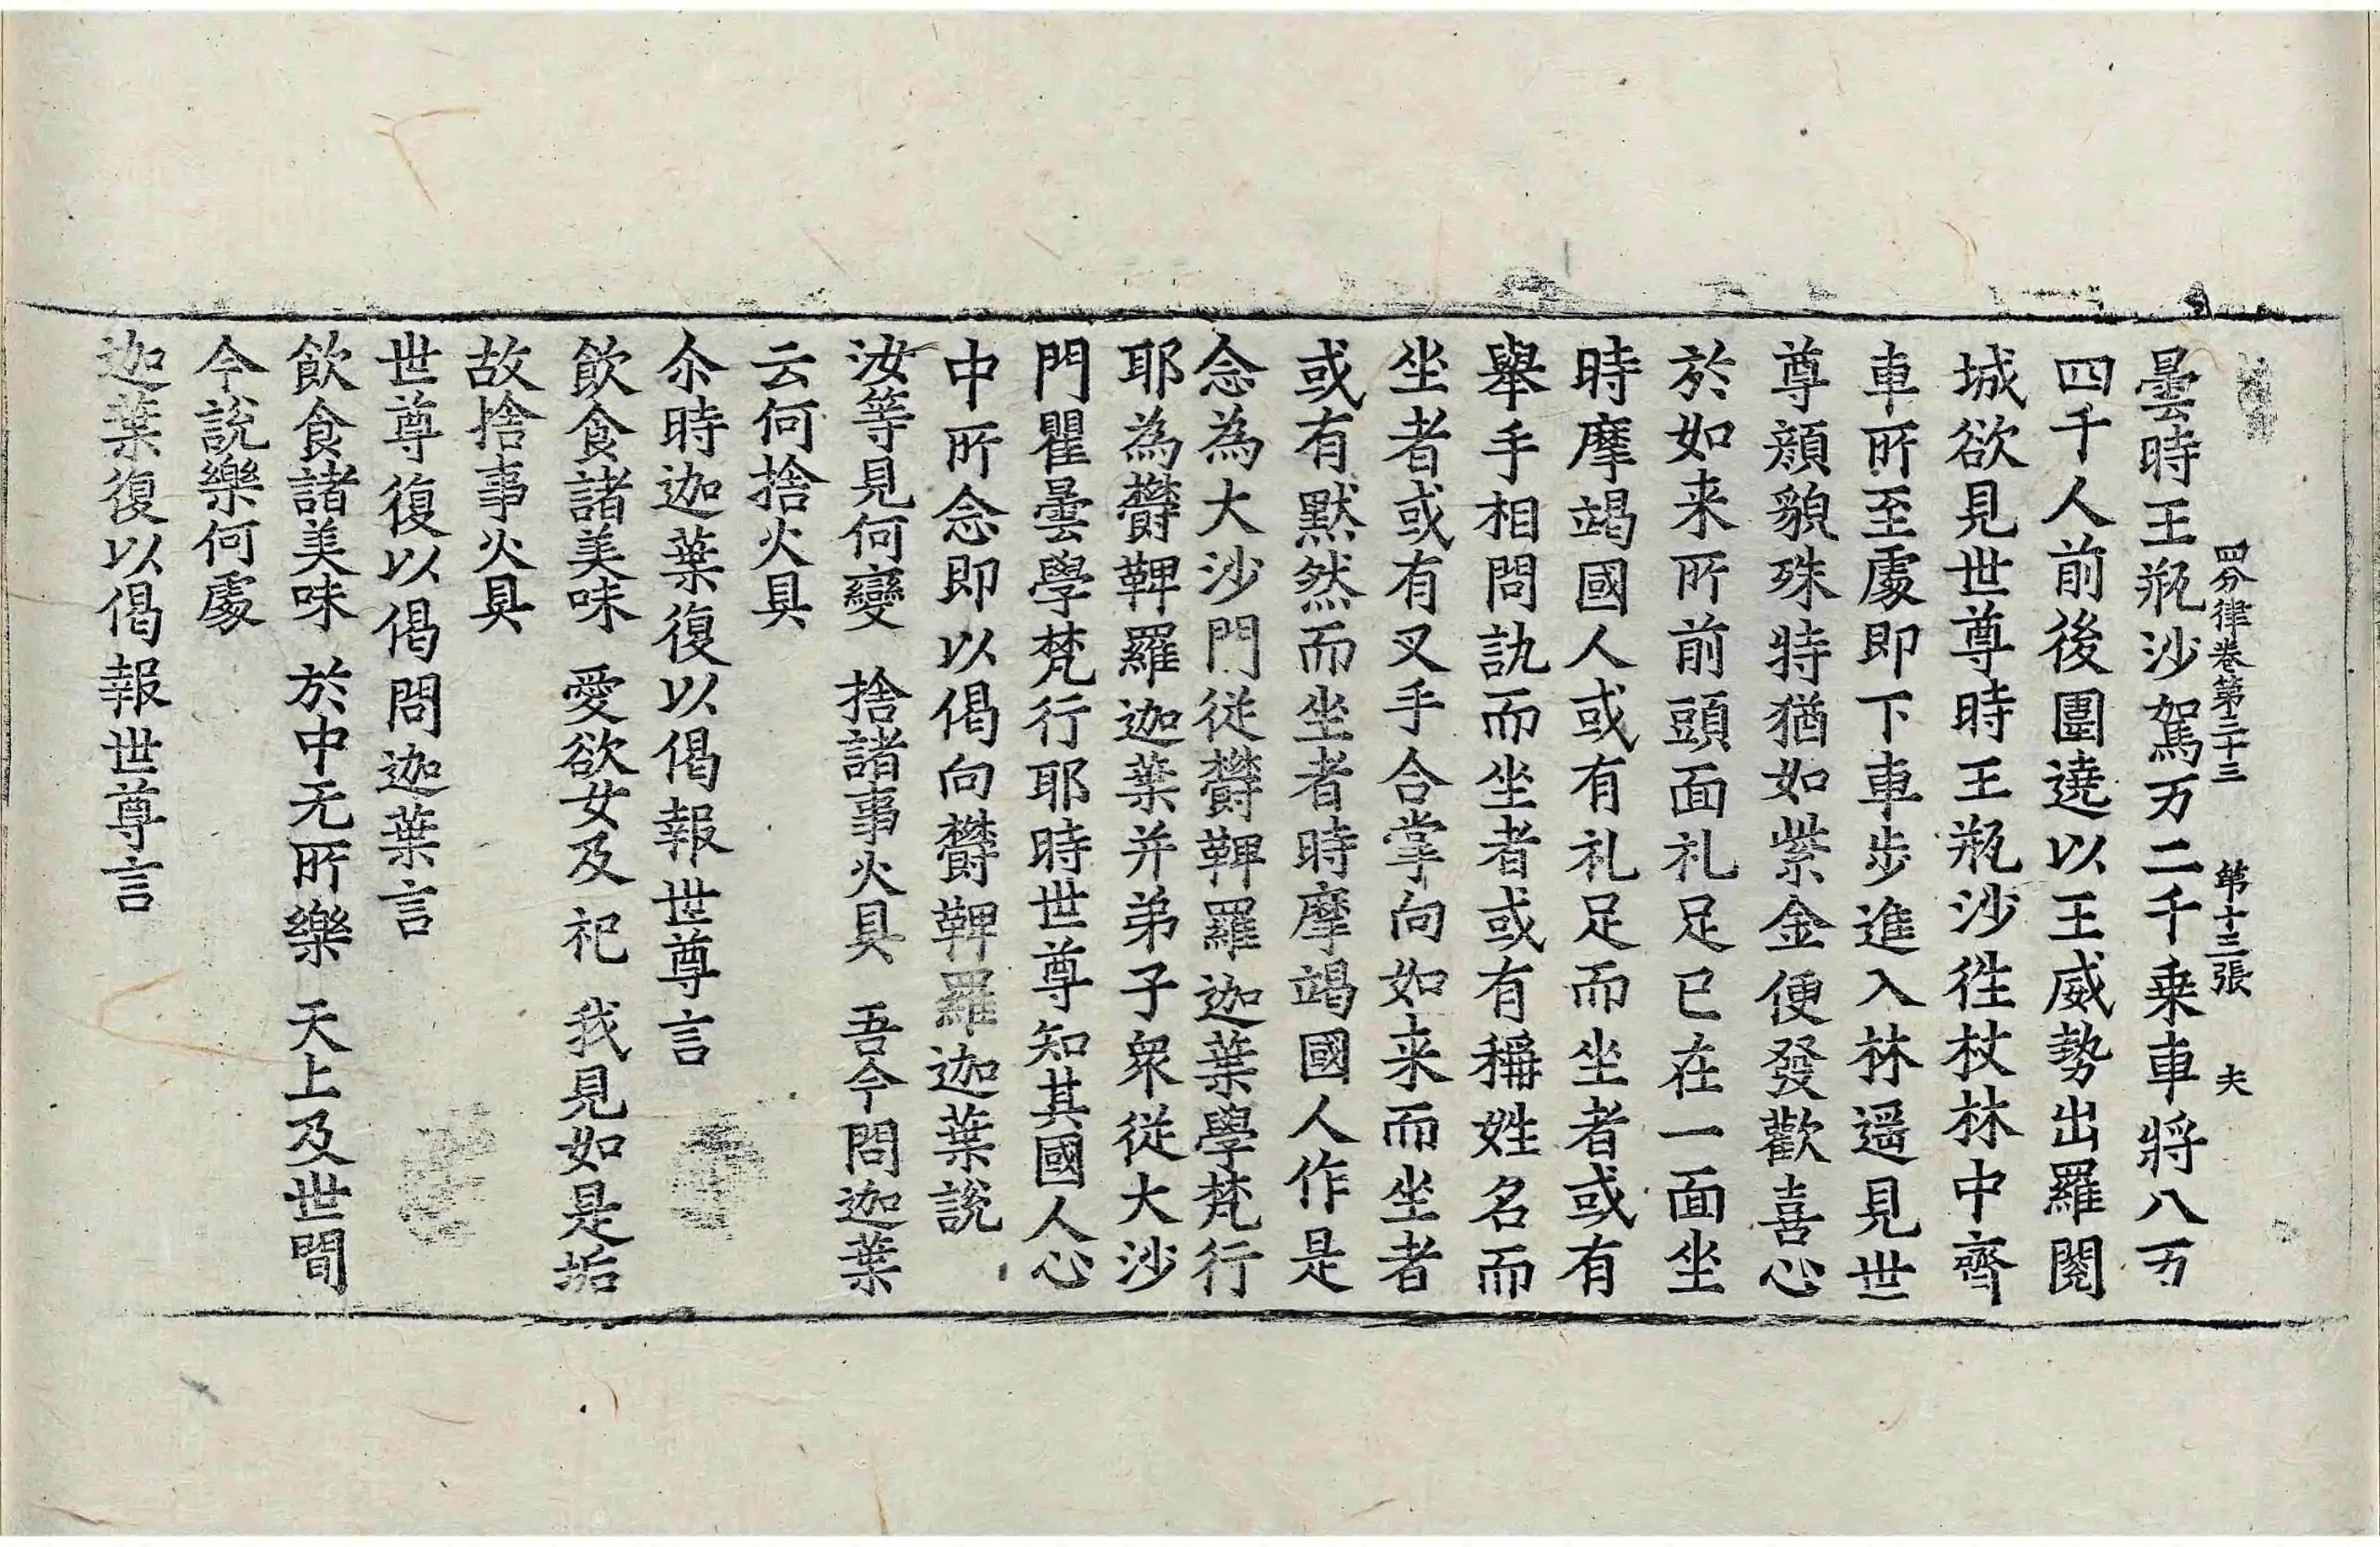 四分律卷第三十三 第十三張 夫
曇時王瓶沙駕万二千乗車將八万
四千人前後圍遶以王威勢出羅閱
城欲見世尊時王瓶沙徃杖林中齊
車所至處即下車步進入林遥見世
尊顔貌殊特猶如紫金便發歡喜心
於如来所前頭面礼足已在一面坐
時摩竭國人或有礼足而坐者或有
舉手相問訊而坐者或有稱姓名而
坐者或有叉手合掌向如来而坐者
或有默然而坐者時摩竭國人作是
念為大沙門從欝鞞羅迦葉學梵行
耶為欝鞞羅迦葉并弟子衆從大沙
門瞿曇學梵行耶時世尊知其國人心
中所念即以偈向欝鞞羅迦葉說
汝等見何變 捨諸事火具 吾今問迦葉
云何捨火具
尒時迦葉復以偈報世尊言
飲食諸美味 愛欲女及祀 我見如是垢
故捨事火具
世尊復以偈問迦葉言
飲食諸美味 於中无所樂 天上及世間
今說樂何處
迦葉復以偈報世尊言